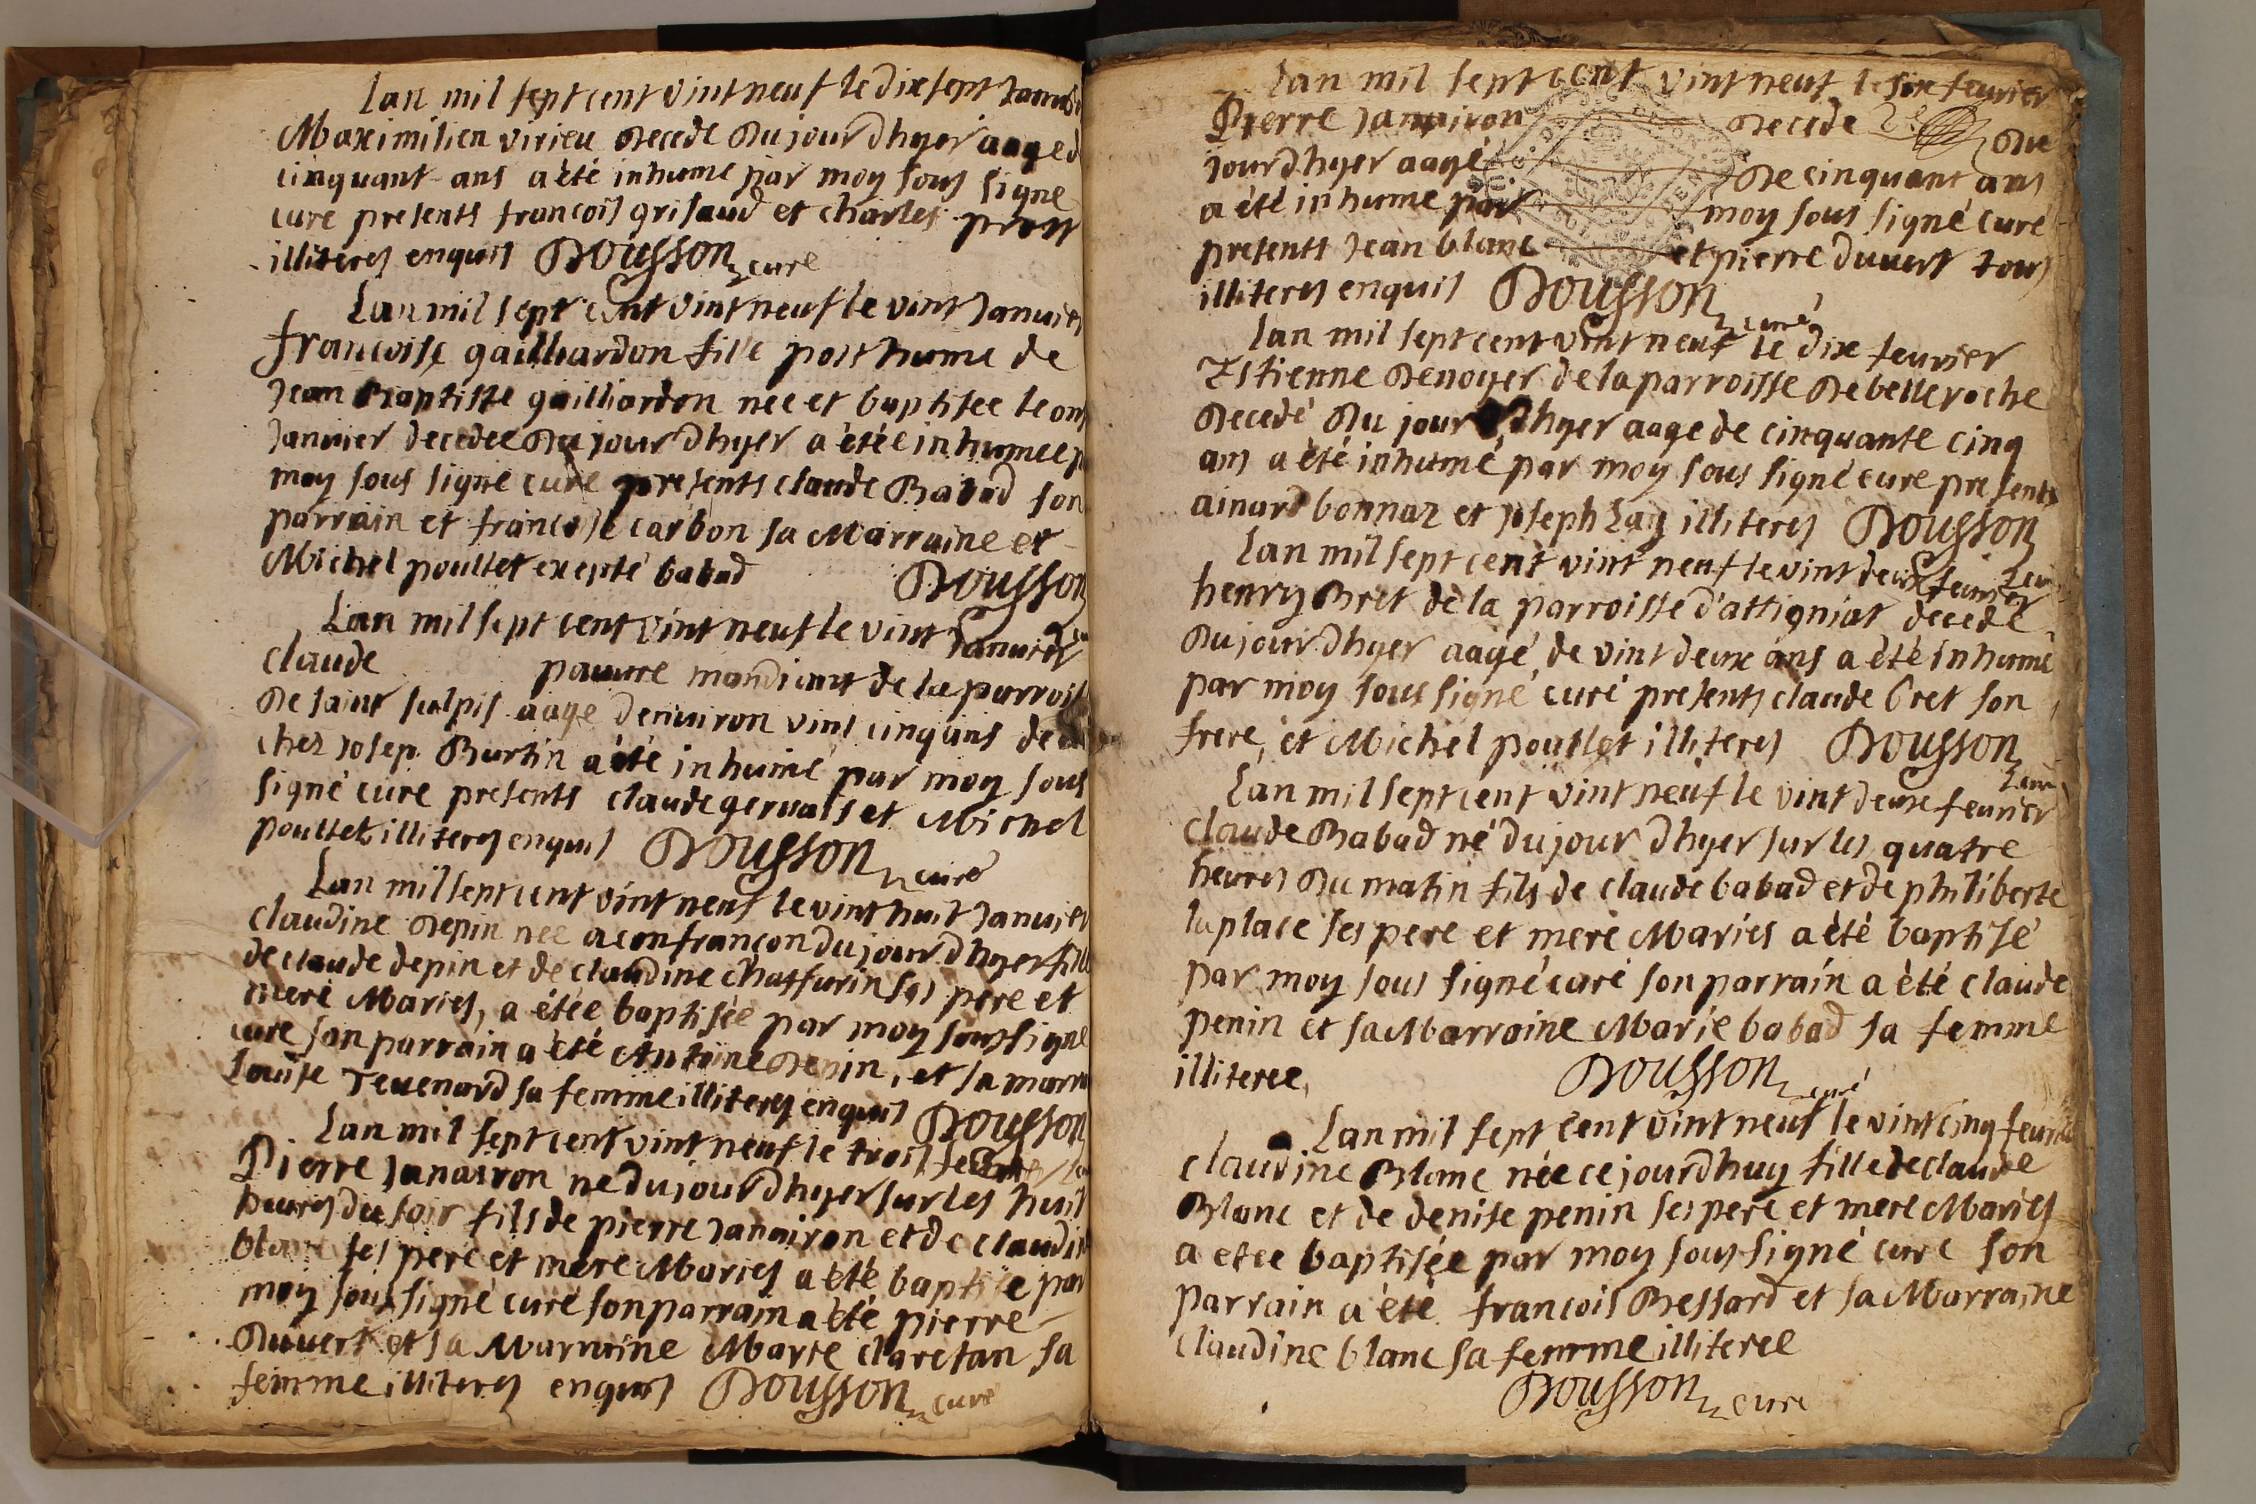 Lan mil sept cent vint neuf le dix sept Janvier
Maximilien virieu decede du jour dhyer aagé d
cinquant ans a èté inhumé par moy sous signe
curé presents francois grisaud et charles prost
illiteres enquis Dousson curé
Lan mil sept cent vint neuf le vint Januier
francoise gailliardon fille posthume de
Jean Baptiste gailliardon née et baptisée le onz
Januier decedée du jour dhyer a étée inhumée p
moy sous signé curé presents claude Babad son
parrain et francoise carbon sa Marraine et
Michel poullet exepté babad Dousson
Lan mil sept cent vint neuf le vint Januier
claude pauure mandiant de la parroiss
de saint sulpis aagé denuiron vint cinq ans dec
chez Josep Burtin a été inhumé par moy sous
signé curé presents claude geruais et Michel
poullet illiteres enquis Dousson curé
Lan mil sept cent vint neuf le vint huit Januier
claudine depin née a confrancon du jour dhyer fille
de claude depin et de claudine chaffurin ses pere et
mere Maries, a étée baptisée par moy sous signé
curé son parrain a èté Antoine depin, et sa marr
Louise Teuenard sa femme illiteres enquis Dousson
Lan mil sept cent vint neuf le trois feurier
Pierre Janairon né du jour dhyer sur les huit
heures du soir fils de pierre Janairon et de claudin
blanc ses pere et mere Maries a èté baptisé par
moy sous signé curé son parrain a été pierre
Duuert et sa Marraine Marie claretan sa
femme illiteres enquis Dousson curé
Lan mil sept cent vint neuf le six feurier
Pierre Janairon decedé du
jour dhyer aagé de cinquant ans
a èté inhumé par moy sous signé curé
presents Jean blanc et pierre duuert tous
illiteres enquis Dousson curé
Lan mil sept cent vint neuf le dix feurier
Estienne denoyer de la parroisse de belleroche
decedé du jour dhyer aagé de cinquante cinq
ans a èté inhumé par moy sous signé curé presents
ainard bonnaz et joseph Lay illiteres Dousson
Lan mil sept cent vint neuf le vint deux feurier
henry Bret de la parroisse d'attigniat decedé
du jour dhyer aagé de vint deux ans a èté inhumé
par moy sous signé curé presents claude bret son
frere, et Michel poullet illiteres Dousson
curé
Lan mil sept cent vint neuf le vint deux feurier
claude Babad né du jour dhyer sur les quatre
heures du matin fils de claude babad et de philiberte
laplace ses pere et mere Maries a èté baptisé
par moy sous signé curé son parrain a èté claude
penin et sa Marraine Marie babad sa femme
illiteree, Dousson curé
Lan mil sept cent vint neuf le vint cinq feurier
claudine Blanc née ce jourdhuy fille de claude
Blanc et de denise penin ses pere et mere Maries
a etée baptisée par moy sous signé curé son
parrain a èté francois Bessard et sa Marraine
claudine blanc sa femme illiteree
Dousson curé